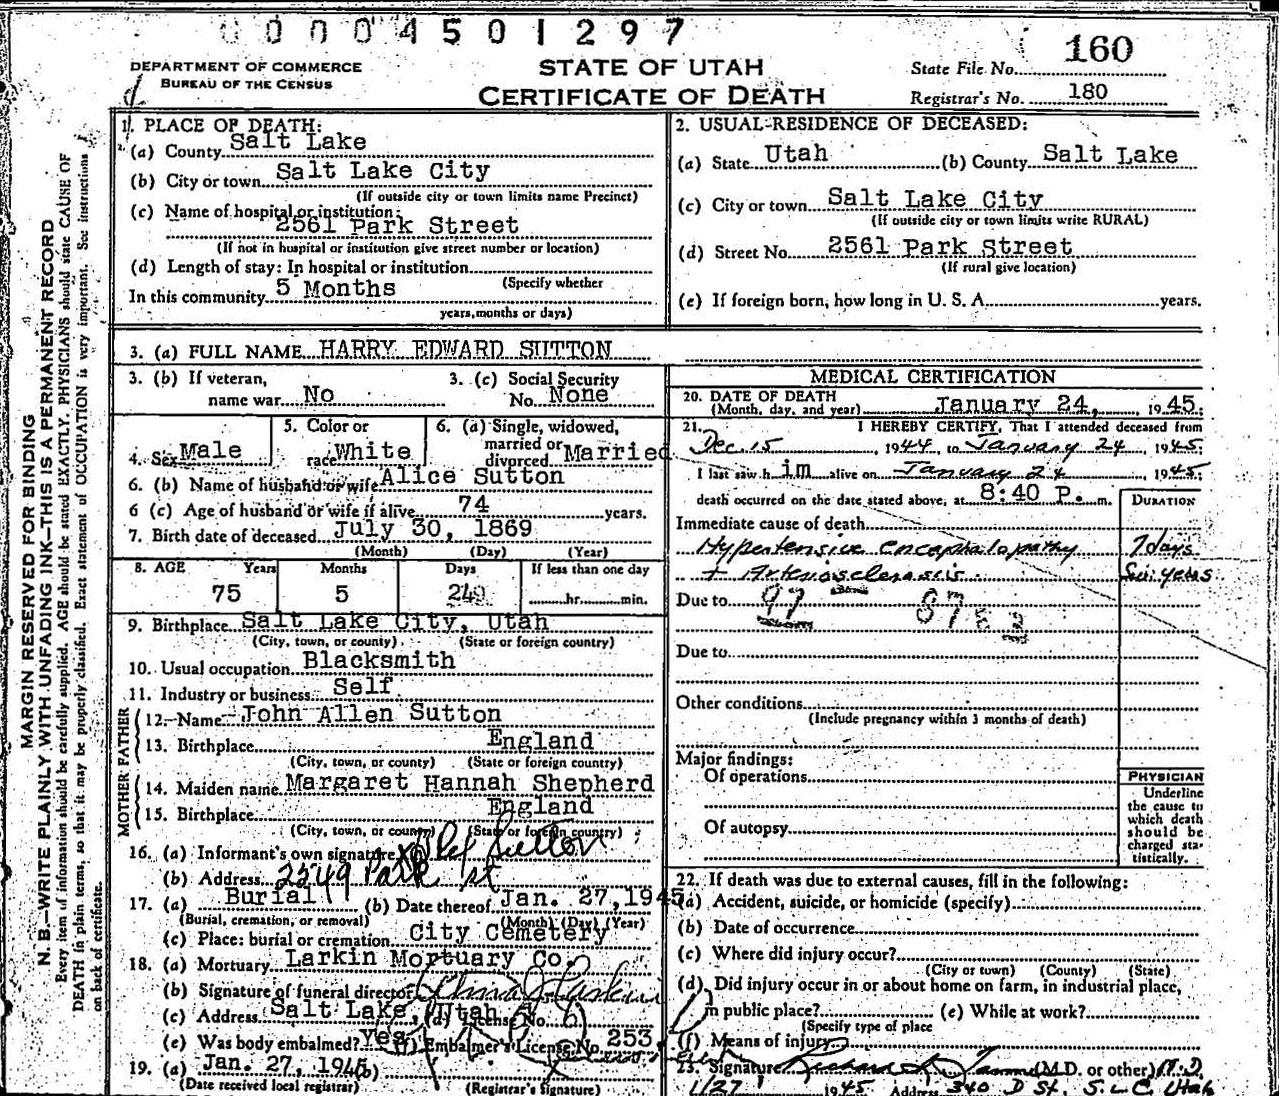 00004501297
DEPARTMENT OF COMMERCE
BUREAU OF THE CENSUS
STATE OF UTAH
CERTIFICATE OF DEATH
State File No. 160
Registrar's No. 180
MARGIN RESERVED FOR BINDING
N. B.—WRITE PLAINLY WITH UNFADING INK—THIS IS A PERMANENT RECORD
Every item of information should be carefully supplied. AGE should be stated EXACTLY. PHYSICIANS should state CAUSE OF
DEATH in plain terms, so that it may be properly classified. Exact statement of OCCUPATION is very important. See instructions
on back of certificate.
1. PLACE OF DEATH:
(a) County Salt Lake
(b) City or town Salt Lake City
(If outside city or town limits name Precinct)
(c) Name of hospital or institution:
2561 Park Street
(If not in hospital or institution give street number or location)
(d) Length of stay: In hospital or institution
(Specify whether
In this community 5 Months
years, months or days)
2. USUAL RESIDENCE OF DECEASED:
(a) State Utah (b) County Salt Lake
(c) City or town Salt Lake City
(If outside city or town limits write RURAL)
(d) Street No. 2561 Park Street
(If rural give location)
(e) If foreign born, how long in U. S. A. years.
3. (a) FULL NAME HARRY EDWARD SUTTON
3. (b) If veteran,
name war No
3. (c) Social Security
No. None
4. Sex Male
5. Color or
race White
6. (a) Single, widowed,
married or
divorced Married
6. (b) Name of husband or wife Alice Sutton
6 (c) Age of husband or wife if alive 74 years.
7. Birth date of deceased July 30, 1869
(Month) (Day) (Year)
8. AGE Years Months Days If less than one day
75 5 hr. min.
9. Birthplace Salt Lake City, Utah
(City, town, or county) (State or foreign country)
10. Usual occupation Blacksmith
11. Industry or business Self
FATHER
12. Name John Allen Sutton
13. Birthplace England
(City, town, or county) (State or foreign country)
MOTHER
14. Maiden name Margaret Hannah Shepherd
15. Birthplace England
(City, town, or county) (State or foreign country)
16. (a) Informant's own signature Sutton
(b) Address 2549 Park St
17. (a) Burial (b) Date thereof Jan. 27, 1945
(Burial, cremation, or removal) (Month) (Day) (Year)
(c) Place: burial or cremation City Cemetery
18. (a) Mortuary Larkin Mortuary Co.
(b) Signature of funeral director
(c) Address Salt Lake, Utah (d) License No.
(e) Was body embalmed? Yes (f) Embalmer's License No. 253
19. (a) Jan. 27, 1945 (b)
(Date received local registrar) (Registrar's signature)
MEDICAL CERTIFICATION
20. DATE OF DEATH
(Month, day, and year) January 24, 1945.
21. I HEREBY CERTIFY, That I attended deceased from
Dec. 15, 1944, to January 24, 1945.
I last saw him alive on January 24 1945
death occurred on the date stated above, at 8:40 P. m.
DURATION
Immediate cause of death
Hypertensive encephalopathy 7 days
+ Arteriosclerosis years
Due to 97
Due to
Other conditions
(Include pregnancy within 3 months of death)
Major findings:
Of operations
Of autopsy
PHYSICIAN
Underline
the cause to
which death
should be
charged sta-
tistically.
22. If death was due to external causes, fill in the following:
(a) Accident, suicide, or homicide (specify)
(b) Date of occurrence
(c) Where did injury occur?
(City or town) (County) (State)
(d) Did injury occur in or about home on farm, in industrial place,
in public place? (e) While at work?
(Specify type of place
(f) Means of injury
23. Signature Richard (M.D. or other) M.D.
1/27 1945 Address 340 D St. S.L.C. Utah